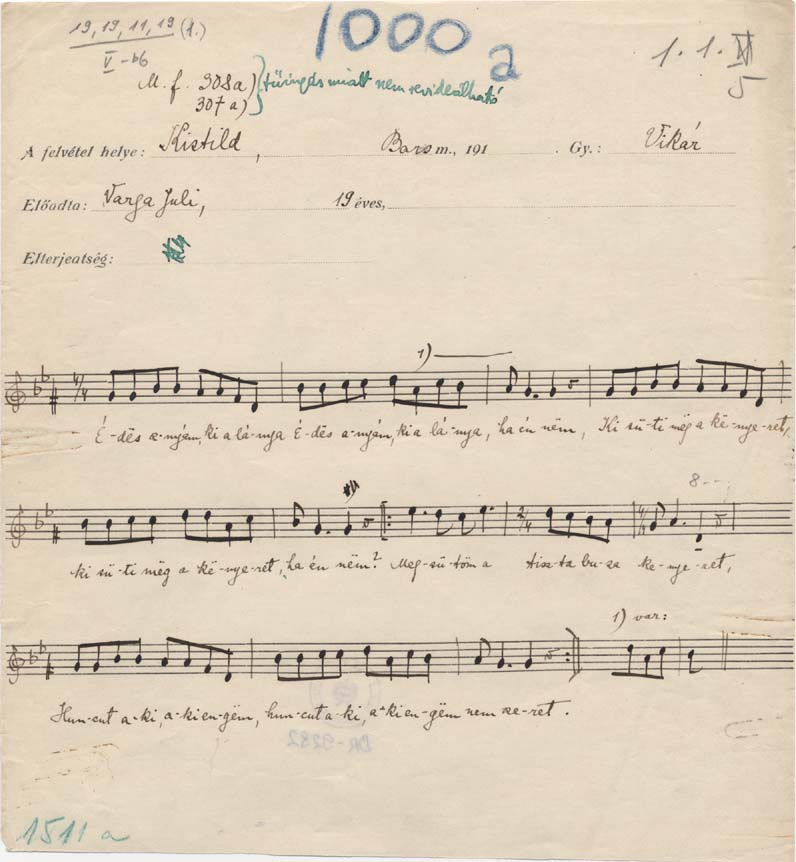 19, 19, 11, 19 (1.)
V - b6
1000 a
1. 1. IV
5
M. f. 308a)
307a)
tűringás miatt nem revideálható
A felvétel helye: Kistild, Bars m., 191 . Gy.: Vikár
Előadta: Varga Juli, 19 éves,
Elterjedtség:
1)
É-dës a-nyám, ki a lá-nya É-dës a-nyám, ki a lá-nya, ha én nëm, Ki sü-ti mëg a kë-nye-ret,
8--
ki sü-ti mëg a kë-nye-ret, ha én nëm? Mëg-sü-töm a tisz-ta bu-za ke-nye-ret,
1) var:
Hun-cut a-ki, a-ki en-gëm, hun-cut a-ki, a-ki en-gëm nem sze-ret.
DR-9282
1511 a